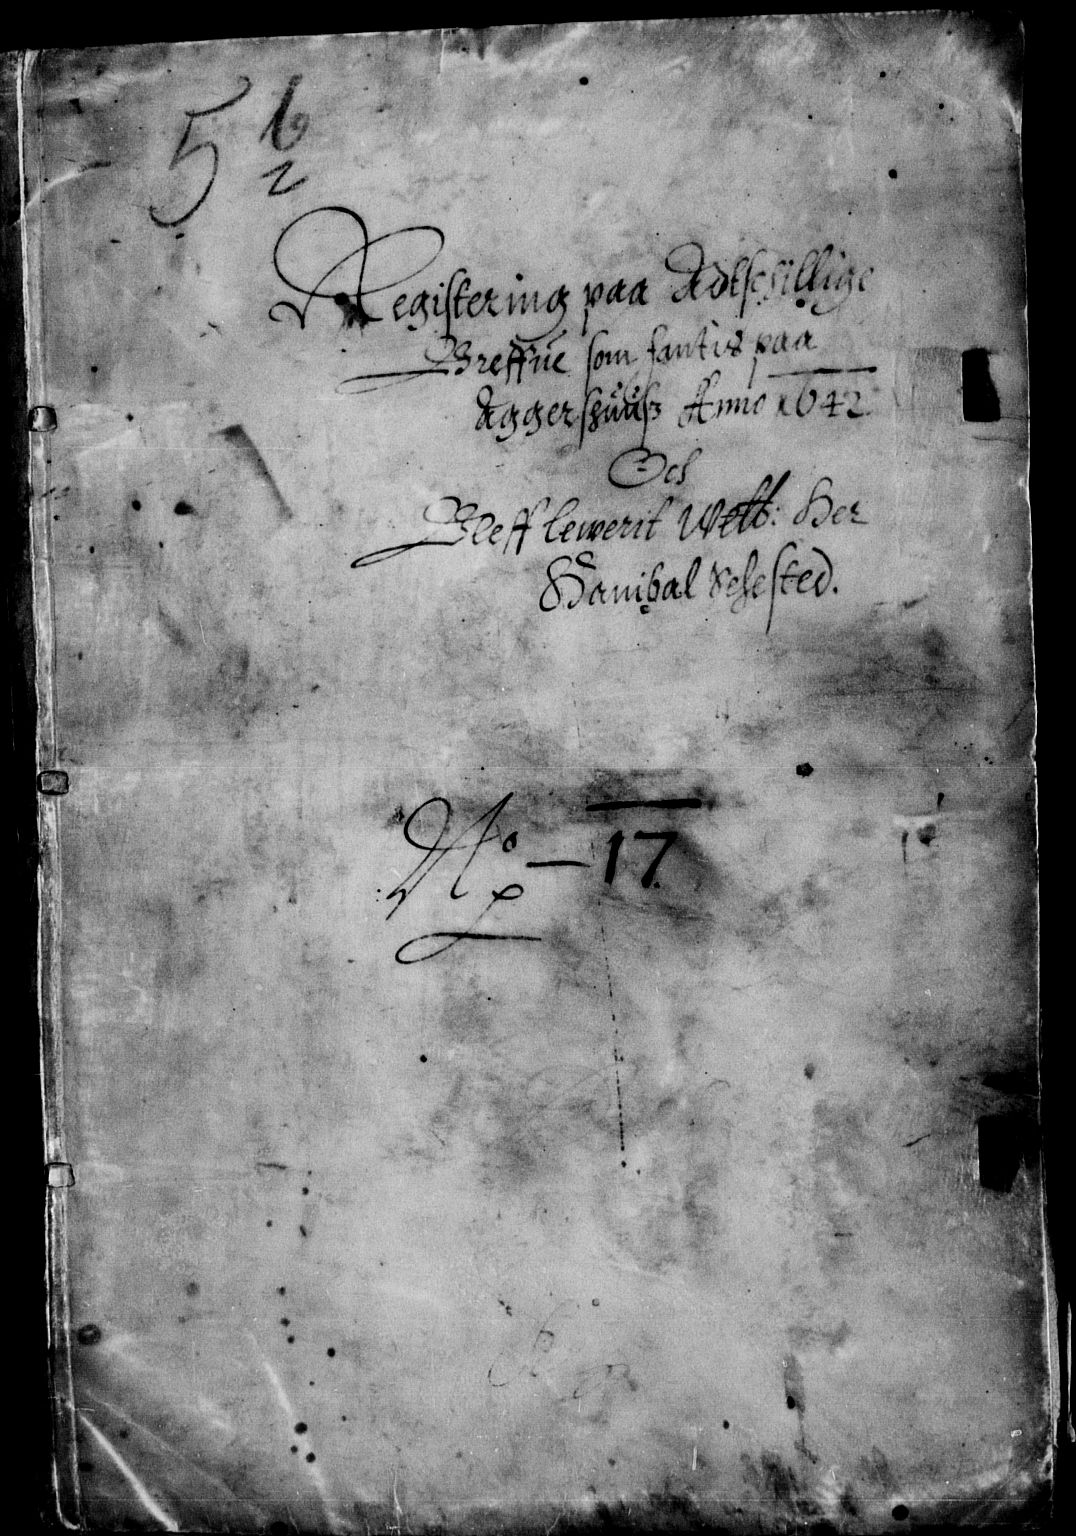 5 b
2
Registering paa Adtschillige
Breffue som fantis paa
Aggershuus Anno 1642
Och
Bleff lewerit Welb: Her
Hanibal Sehested.
No — 17.